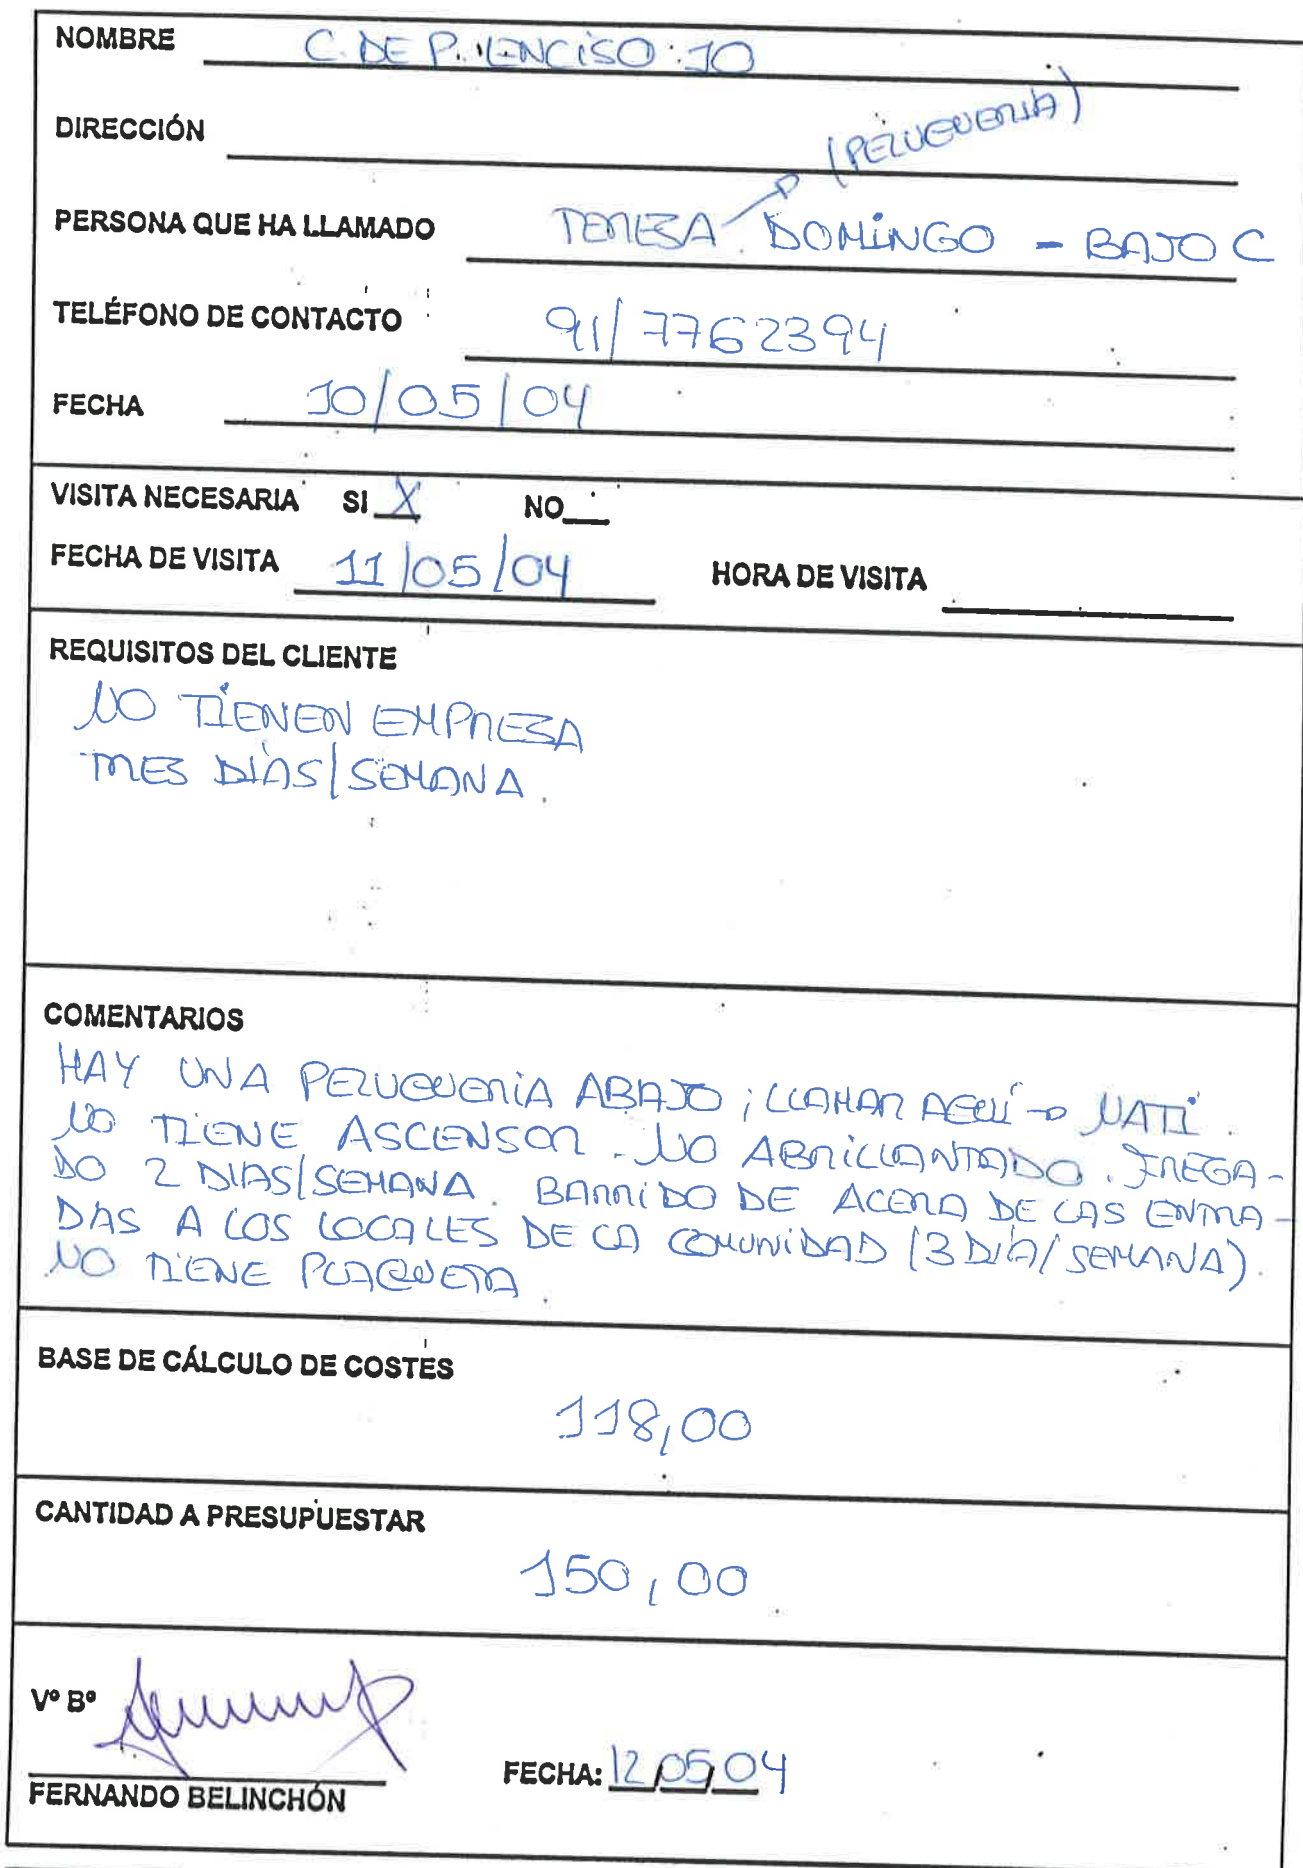 NOMBRE C. DE P. ENCISO: 10
DIRECCIÓN
(PELUQUERIA)
PERSONA QUE HA LLAMADO TERESA DOMINGO - BAJO C
TELÉFONO DE CONTACTO 91/7762394
FECHA 10/05/04
VISITA NECESARIA SI X NO
FECHA DE VISITA 11/05/04 HORA DE VISITA
REQUISITOS DEL CLIENTE
NO TIENEN EMPRESA
TRES DÍAS/SEMANA.
COMENTARIOS
HAY UNA PELUQUERIA ABAJO; LLAMAR AQUÍ → NATI.
NO TIENE ASCENSOR. NO ABRILLANTADO. FREGA-
DO 2 DIAS/SEMANA. BARRIDO DE ACERA DE LAS ENTRA-
DAS A LOS LOCALES DE LA COMUNIDAD (3 DÍA/SEMANA).
NO TIENE PLAQUETA.
BASE DE CÁLCULO DE COSTES
118,00
CANTIDAD A PRESUPUESTAR
150,00
Vº Bº
FECHA: 12/05/04
FERNANDO BELINCHÓN